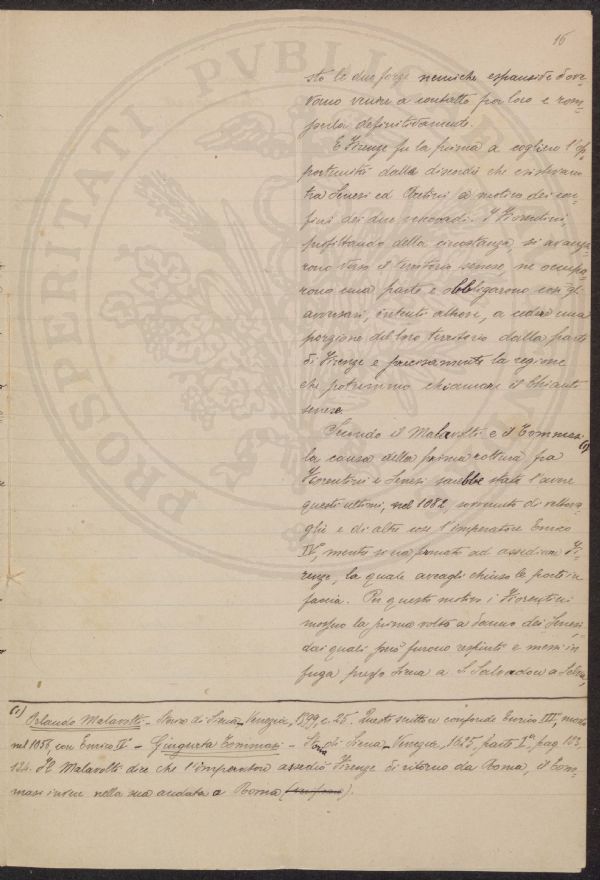 16
sto le due forze nemiche espansive dove-
vano venire a contatto fra loro e rom-
perla definitivamente.
E Firenze fu la prima a cogliere l'op-
portunità dalle discordie che esistevano
tra Senesi ed Aretini a motivo dei con-
fini dei due vescovadi. I Fiorentini,
profittando della circostanza, si avanza-
rono verso il territorio senese, ne occupa-
rono una parte e obbligarono così gl'
avversari, intenti altrove, a cedere una
porzione del loro territorio dalla parte
di Firenze e precisamente la regione
che potremmo chiamare il Chianti
senese.
Secondo il Malavolti e il Tommasi (1)
la causa della prima rottura fra
Fiorentini e Senesi sarebbe stata l'avere
questi ultimi, nel 1082, sovvenuto di vetto-
vaglie e di altre cose l'imperatore Enrico
IV, mentre s'era fermato ad assediare Fi-
renze, la quale aveagli chiuso le porte in
faccia. Per questo motivo i Fiorentini
mossero la prima volta a danno dei Senesi,
dai quali però furono respinti e messi in
fuga presso Siena a S. Salvadore a Selva,
(1) Orlando Malavolti - Storia di Siena - Venezia, 1599, c. 25. Questo scrittore confonde Enrico III, morto
nel 1056, con Enrico IV - Giugurta Tommasi - Storia di Siena - Venezia, 1625, parte Iª, pag. 123,
124. Il Malavolti dice che l'imperatore assediò Firenze di ritorno da Roma, il Tom-
masi invece nella sua andata a Roma
PROSPERITATI PVBLICAE